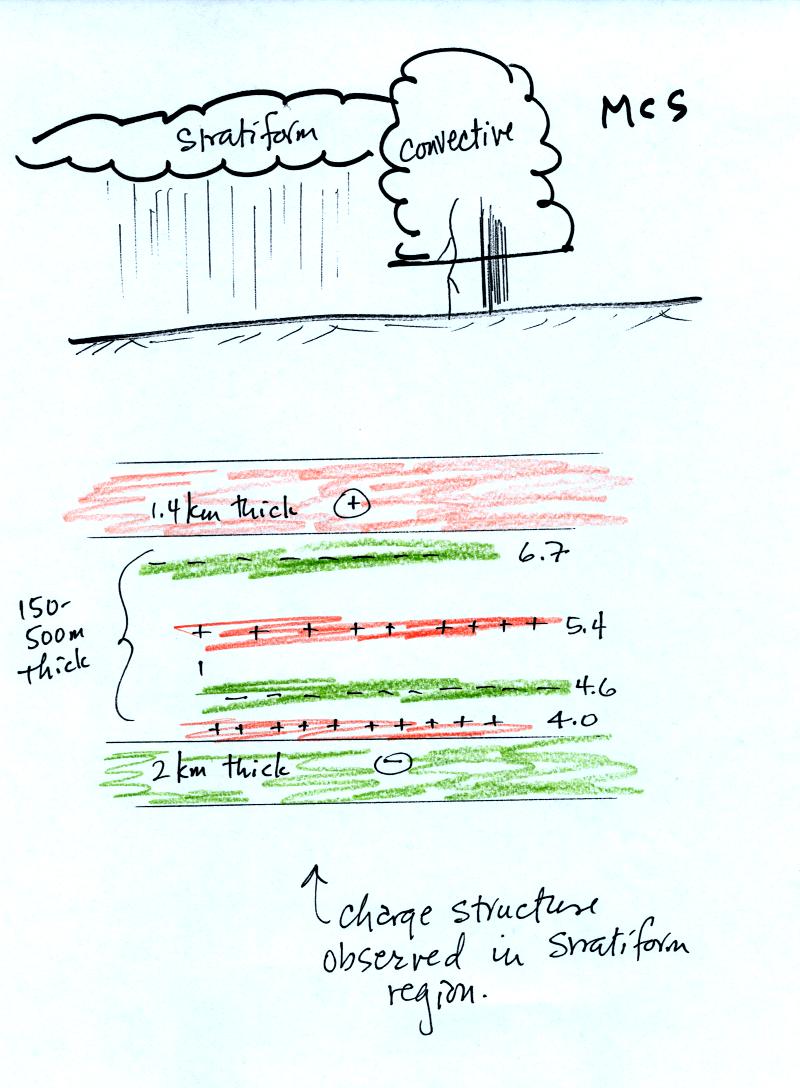 MCS
Stratiform
Convective
1.4 km thick +
- - - - - - - - - 6.7
150-
500m
thick
+ + + + + + + + + 5.4
- - - - - - - - - 4.6
+ + + + + + + + + + 4.0
2 km thick -
↑ charge structure
observed in stratiform
region.